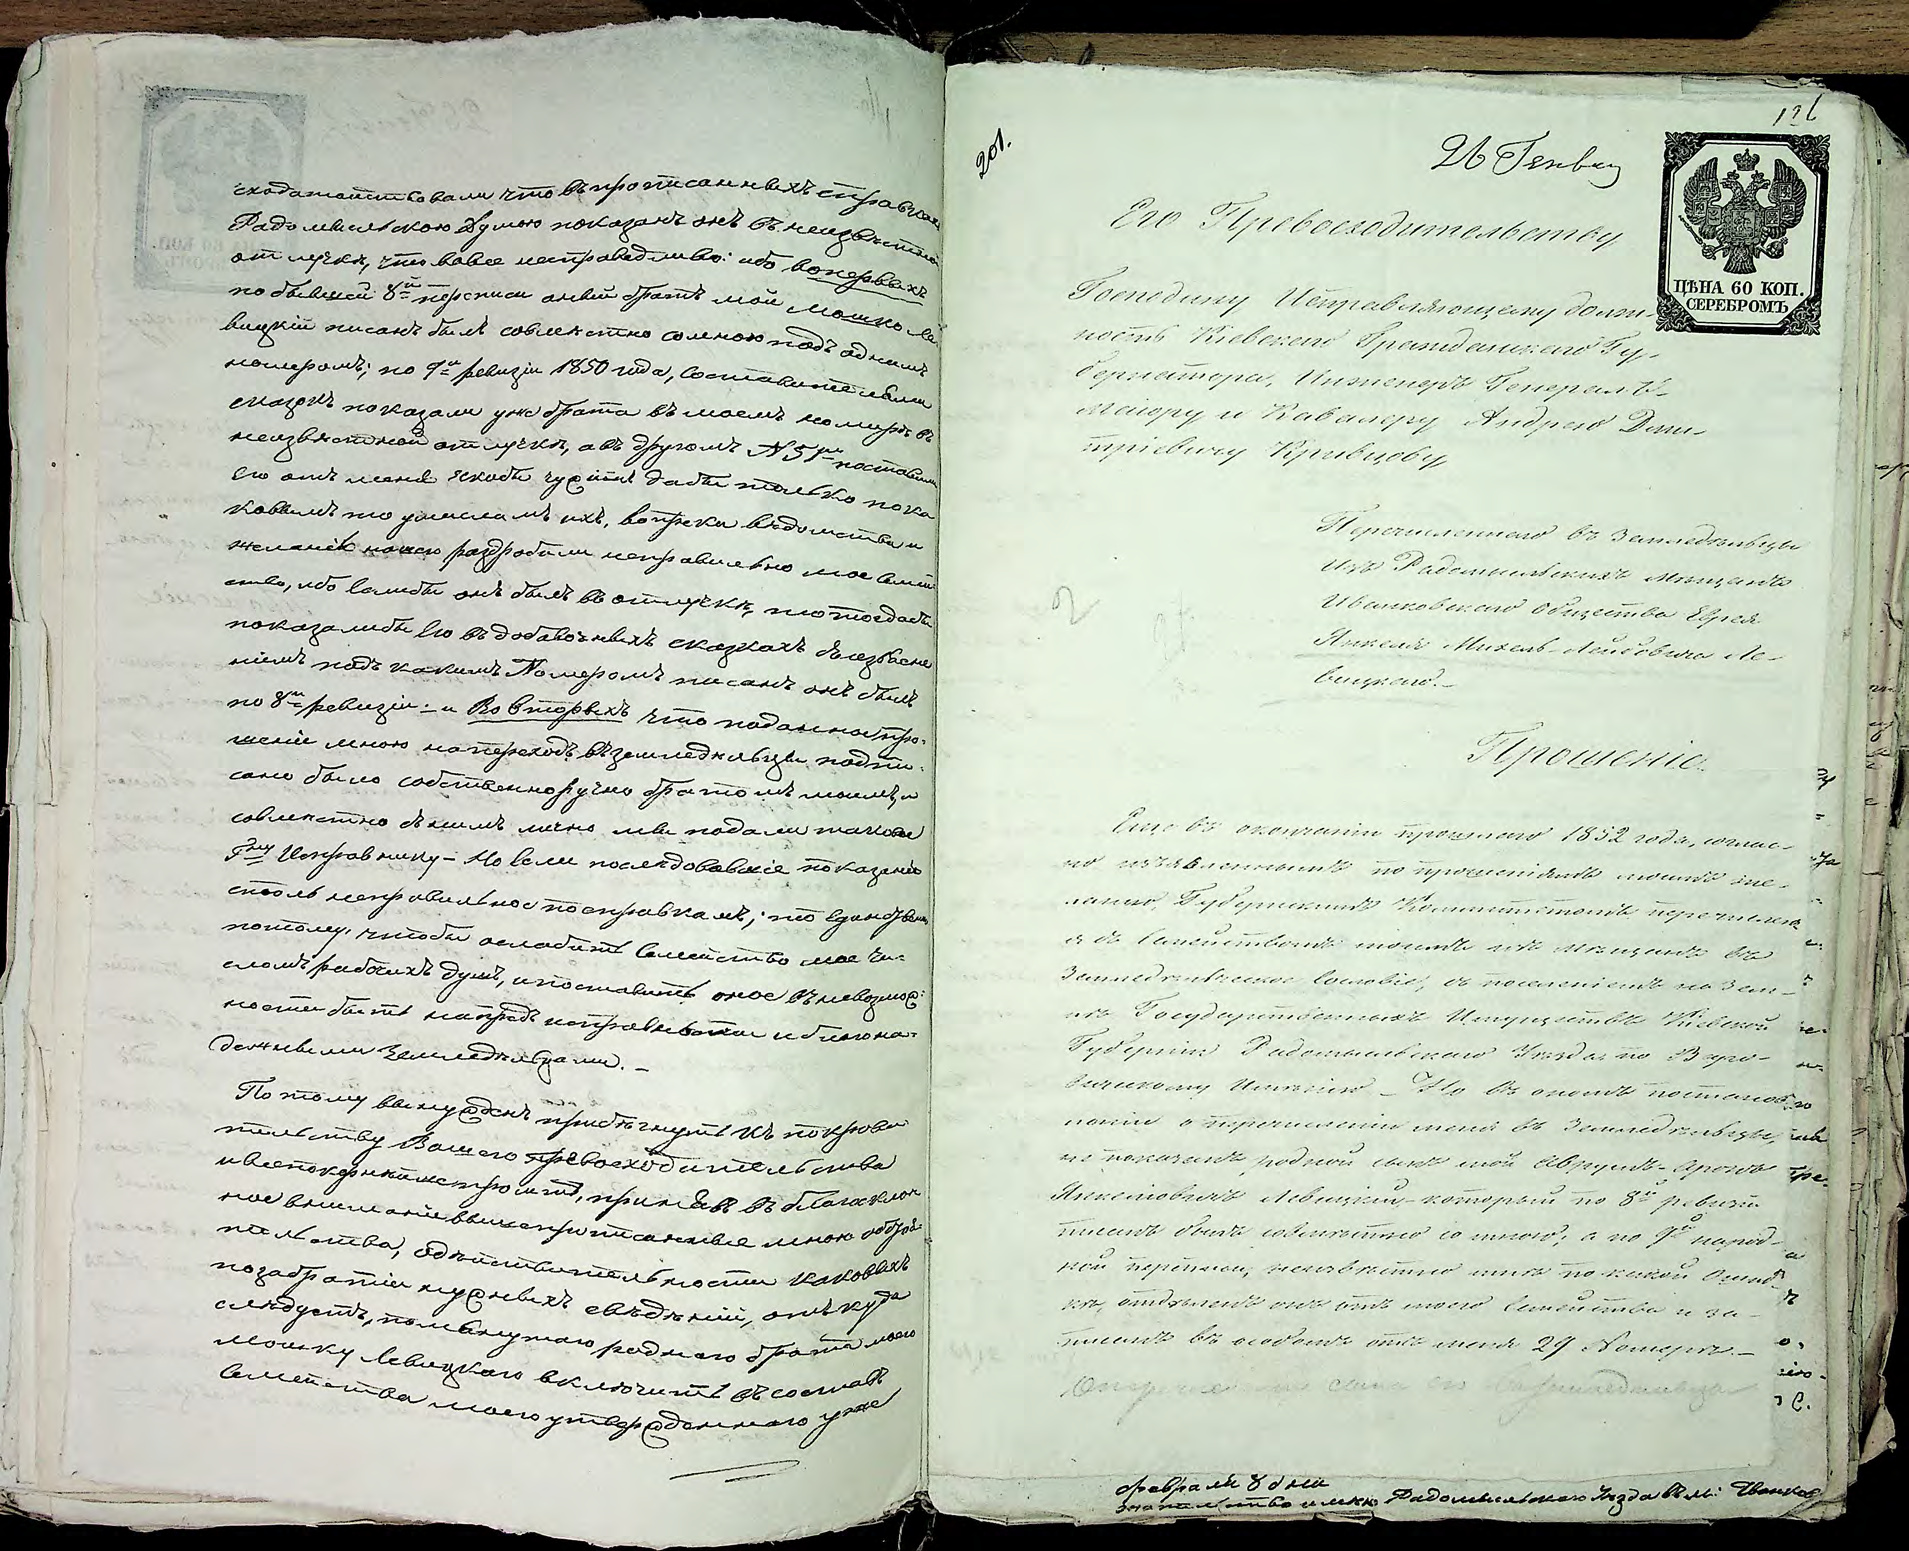 сходатайствовали что въ прописанныхъ справкахъ
Радомысльскою Думою показанъ онъ въ неизвѣстной
отлучкѣ, что вовсе несправедливо: ибо вопервыхъ
по бывшей 8й переписи оный братъ мой Мошко Ле-
вицкій писанъ былъ совмѣстно со мною подъ однимъ
номеромъ; по 9й ревизіи 1850 года, составители
сказокъ показали уже брата въ моемъ номерѣ въ
неизвѣстной отлучкѣ, а въ другомъ N 51м поставили
его отъ меня дабы только по ка-
ковымъ то умысламъ ихъ, вопреки вѣдомства и
желанію нашего раздробили неправильно мое семей-
ство, ибо еслибы онъ былъ въ отлучкѣ, то тогда бы
показалибы его въ добавочныхъ сказкахъ
ніемъ подъ какимъ Номеромъ писанъ онъ былъ
по 8й ревизіи. – и Во вторыхъ что поданное про-
шеніе мною на переходъ въ земледѣльцы подпи-
сано было собственноручно братомъ моимъ, и
совмѣстно съ нимъ лично мы подали таковое
Гну Исправнику – Но если последовавшіе показаніе
столь неправильное по справкамъ; то единственно
потому, чтобы ослабить семейство мое чи-
сломъ рабочихъ душъ, и поставить оное въ невозмож-
ности быть исправными и благона-
дежными Земледѣльцами. –
Потому вынужденъ прибѣгнуть къ покрови-
тельству Вашего Превосходительства
и всепокорнѣйше прошу, принявъ въ благосклон-
ное вниманіе вышепрописанные мною обстоя-
тельства, о дѣйствительности каковыхъ
по забратіи нужныхъ свѣдѣній, откуда
слѣдуетъ, помянутаго роднаго брата моего
Мошку Левицкаго включить въ составъ
семейства моего утвержденнаго уже
201.
26 Генвря
ЦѢНА 60 КОП.
СЕРЕБРОМЪ
Его Превосходительству
Господину Исправляющему долж-
ность Кіевскаго Гражданскаго Гу-
бернатора, Инженеръ Генералъ-
Маіору и Кавалеру Андрею Дми-
тріевичу Кривцову,
Перечисленнаго въ Земледѣльцы
Изъ Радомысльскихъ Мѣщанъ
Иванковскаго Общества Еврея
Янкеля Михель-Лейбовича Ле-
вицкаго. –
2
Прошеніе.
Еще въ окончаніи прошлаго 1852 года, соглас-
но изъявленнымъ по прошеніямъ моимъ же-
ланію, Губернскимъ Комитетомъ перечислен
я съ семействомъ моимъ изъ мѣщанъ въ
Земледѣльческое Сословіе, съ поселеніемъ на Зем-
лѣ Государственныхъ Имуществъ Кіевской
Губерніи Радомысльскаго Уѣзда по
Имѣнію – Но въ ономъ постанов-
леніи о перечисленіи меня въ Земледѣльцы,
не показанъ родной сынъ мой Абрумъ-Аронъ
Янкелевичъ Левицкій – который по 8й ревизіи
писанъ былъ совмѣстно со мною; а по 9й народ-
ной переписи, неизвѣстно мнѣ по какой ошиб-
кѣ, отдѣленъ онъ отъ моего Семейства и за-
писанъ въ особомъ отъ меня 29 Номерѣ. –
сына его въ Земледѣльцы
февраля 8 дня
жительство имѣю Радомысльскаго Уѣзда въ м: Иванков